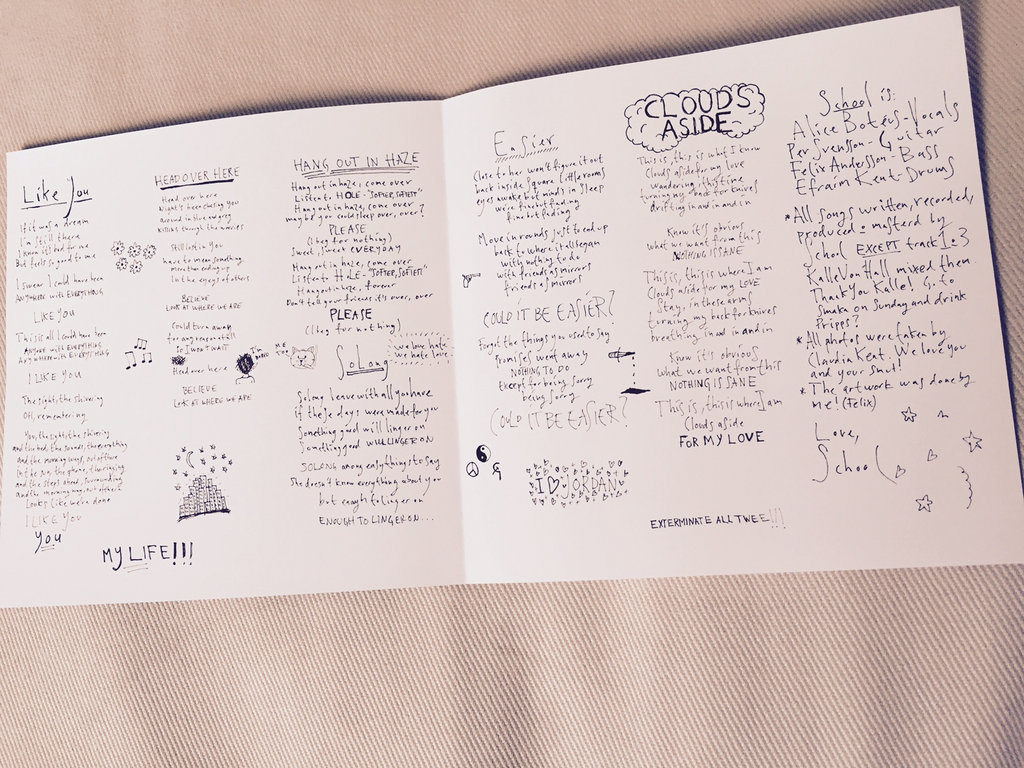 Like You
If it was a dream
I'm still there
I know it's bad for me
But feels so good to me
I swear I could have been
ANYWHERE with EVERYTHING
LIKE YOU
This is all I could have been
ANYONE with EVERYTHING
Anywhere with EVERYTHING
I LIKE YOU
The sights, the shivering
Oh, remembering
You, the sights, the shivering
and the bed, the sounds, the everything
And the morning
In the
and the steps, surrounding
And the morning
Looks like we're done
I LIKE YOU
You
MY LIFE!!!
HEAD OVER HERE
Head over here
Night's here chasing you
around in blue and grey
Killing through the
Still lost in you
have to mean something
More than ending up
In the eyes of others
BELIEVE
LOOK AT WHERE WE ARE
Could turn away
for any reason at all
So I won't WAIT
Head over here
BELIEVE
LOOK AT WHERE WE ARE
I'm bored
ME
HANG OUT IN HAZE
Hang out in haze, come over
Listen to HOLE - "SOFTER, SOFTEST"
Hang out in haze, come over
maybe you could sleep over, over?
PLEASE
(I beg for nothing)
Sweet, sweet EVERYDAY
Hang out in haze, come over
Listen to HOLE - "SOFTER, SOFTEST"
Hang out in haze, forever
Don't tell your friends it's over, over
PLEASE
(I beg for nothing)
So Long
we love hate
we hate love
So long, leave with all you have
if these days were made for you
Something good will linger on
Something good WILL LINGER ON
SO LONG among easy things to say
She doesn't know everything about you
but enough to linger on
ENOUGH TO LINGER ON...
Easier
Close to her won't figure it out
back inside square little rooms
eyes awake but minds in sleep
were fine but fading
fine but fading
Move in rounds just to end up
back to where it all began
with nothing to do
with friends as mirrors
friends as mirrors
COULD IT BE EASIER?
Forget the things you used to say
promises went away
NOTHING TO DO
Except for being sorry
being sorry
COULD IT BE EASIER?
I ♡ JORDAN
CLOUDS
ASIDE
This is, this is what I know
Clouds aside for my love
wandering
turning my back for knives
drifting in and in and in
Know it's obvious
what we want from this
NOTHING IS SANE
This is, this is where I am
Clouds aside for my LOVE
Stay, in these arms
turning my back for knives
breathing in and in and in
Know it's obvious
What we want from this
NOTHING IS SANE
This is, this is where I am
Clouds aside
FOR MY LOVE
EXTERMINATE ALL TWEE!!!
School is:
Alice Botéus - Vocals
Per Svensson - Guitar
Felix Andersson - Bass
Efraim Kent - Drums
*All songs written, recorded,
produced & masterd by
School EXCEPT track 1 & 3
Kalle Von Hall mixed them.
Thank you Kalle! Go to
Smaka on Sunday and drink
Pripps?
*All photos were taken by
Claudia Kent. We love you
and your Snut!
*The artwork was done by
me! (Felix)
Love,
School